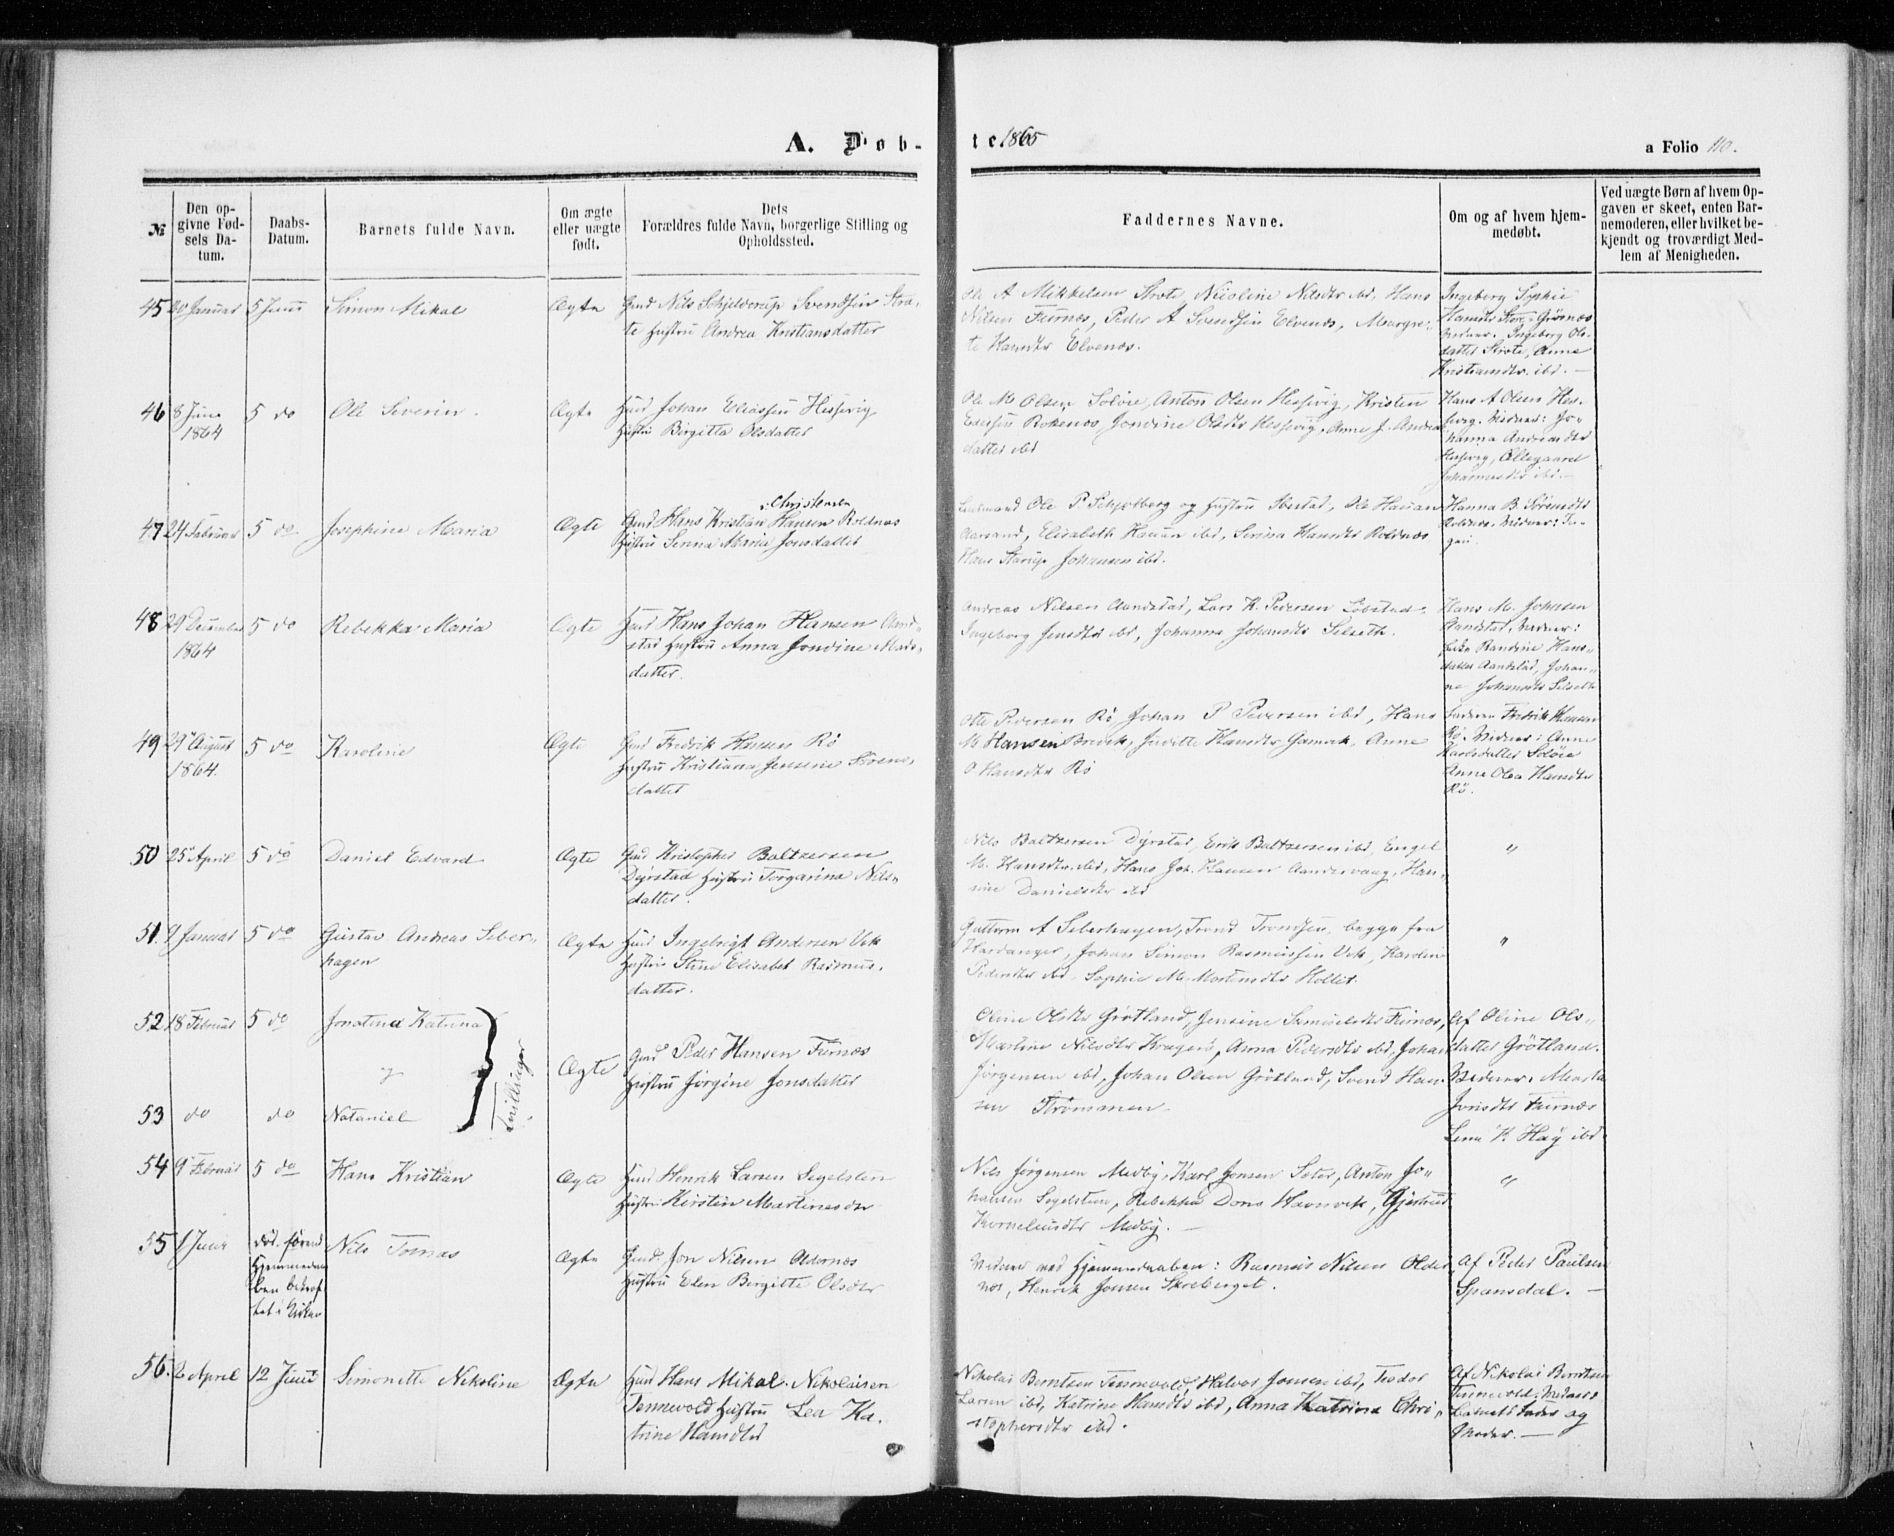 A. Døb-
te 1865
a Folio 110.
№
Den opgivne Fødsels Datum.
Daabs-Datum.
Barnets fulde Navn.
Om ægte eller uægte født.
Dets Forældres fulde Navn, borgerlige Stilling og Opholdssted.
Faddernes Navne.
Om og af hvem hjemmedøbt.
Ved uægte Børn af hvem Opgaven er skeet, enten Barnemoderen, eller hvilket bekjendt og troværdigt Medlem af Menigheden.
45 20 Januar 5 Juni Simon Mikal Ægte Gmd Nils Schjelderup Svendsen Stro-
te Hustru Andrea Kristiansdatter
Ole A Mikkelsen Strote Nicoline Nilsdtr ibd, Hans
Nilsen Furnes, Peder A Svendsen Elvenes, Margre-
te Hansdtr Elvenes.
Ingeborg Sophie
Ingeborg Ols-
datter Strote, Anne
Kristiansdtr. ibd. —
46 8 Juni 1864 5 do Ole Severin. Ægte Huus Johan Eliassen Hessevig,
Hustru Birgitta Olsdatter
Ole M Olsen Soløie, Anton Olsen Hessevig, Kristen
Rokenes, Jondine Olsdtr Hessevig, Anne J. Andreas
datter ibd
Hans A Olsen Hes-
sevig. Vidner: Jo-
hanna Andreasdtr
Hessevig, Ellegaard
Johannesdtr ibd.—
47 24 Februar 5 do Josephine Maria Ægte Gmd Hans Kristian Christensen Hansen Roldnes
Hustru Serina Maria Jonsdatter
Ole P Schjelberg og Hustru Ibestad, Ole Hanan
Aarsand, Elisabeth Hanan ibd, Serina Hansdtr Roldnes
Hans Starup Johansen ibd.
Hanna B. Sørensdtr
Roldnes. Vidner: In-
gen.
48 29 December 1864 5 do Rebekka Maria Ægte Huus Hans Johan Hansen Aand-
stad Hustru Anna Jondine Mads-
datter.
Andreas Nilsen Aandstad, Lars K. Pedersen Løbstad.
Ingeborg Jensdtr ibd, Johanna Johansdtr Selseth.
Hans M. Johnsen
Aandstad, Vidner:
Randine Hans-
datter Aandstad, Johan-
ne Johansdtr Selseth
49 29 August 1864. 5 do Karoline Ægte Gmd Fredrik Hansen Rø
Hustru Kristianna Jensine
datter
Ole Pedersen Rø, Johan P Pedersen ibd, Hans
M Hansen Brevik, Juditte Hansdtr Gamvik, Anne
O Hansdtr Rø
Faderen Fredrik Hansen
Rø. Vidner: Anne
Karlsdatter Soløie
Anne Olea Hansdtr
Rø.
50 25 April 5 do Daniel Edvard Ægte Gmd Kristopher Baltzersen
Dyrstad Hustru Torgarina Nils-
datter.
Nils Baltzersen Dyrstad, Erik Baltzersen ibd, Engel
M. Hansdtr. ibd, Hans Joh. Hansen Aandervaag, Han-
sine Danielsdtr ibd
"
51. 9 Januar 5 do Gustav Andreas Seber-
hagen Ægte Huus Ingebrigt Andersen Vik
Hustru Stine Elisabet Rasmus-
datter.
Guttorm A Seberhagen, Trond Trondsen, begge fra
Hardanger, Johan Simon Rasmussen Vik, Karden
Pedersdtr ibd, Sophie M. Mortensdtr Hollet.
"
52 18 Februar 5 do Jonetina Katrina
og
53 do do Nataniel
Tvillinger
Ægte Gmd Peder Hansen Furnes
Hustru Jørgine Jonsdatter
Oline Olsdtr Grøtland, Jensine Samuelsdtr Furnes,
Martine Nilsdtr Krageø, Anna Pedersdtr ibd, Johan
Jørgensen ibd, Johan Olsen Grøtland, Svend Han-
sen Strømmen
Af Oline Ols-
datter Grøtland.
Vidner: Marta
Jonsdtr Furnes
Lena K. Hay ibd.
54 9 Februar 5 do Hans Kristian Ægte Huus Henrik Larsen Segelsten
Hustru Kirsten Martinesdtr
Nils Jørgensen Medby, Karl Jensen Seter, Anton Jo-
hansen Segelsten, Rebekka Dons Havnvik, Gjertrud
Korneliusdtr Medby. —
"
55 1 Juni død. førend Hjemmedaaben bekræftet i Kirken Nils Tomas Ægte Gmd Jon Nilsen Oldernes
Hustru Elen Birgitte Olsdtr
Vidner ved Hjemmedaaben: Rasmus Nilsen Older
nes, Henrik Jonsen Skoeberget.
Af Peder Paulsen
Spansdal. —
56. 2 April 12 Juni Simonette Nikoline Ægte Huus Hans Mikal Nikolaisen
Tennevold Hustru Lea Ka-
trine Hansdtr
Nikolai Berntsen Tennevold, Halvor Jonsen ibd, Teodor
Larsen ibd, Katrine Hansdtr ibd, Anna Katrine Chri-
stophersdtr ibd.
Af Nikolai Berntsen
Tennevold. Vidner:
Barnets Fader og
Moder. —